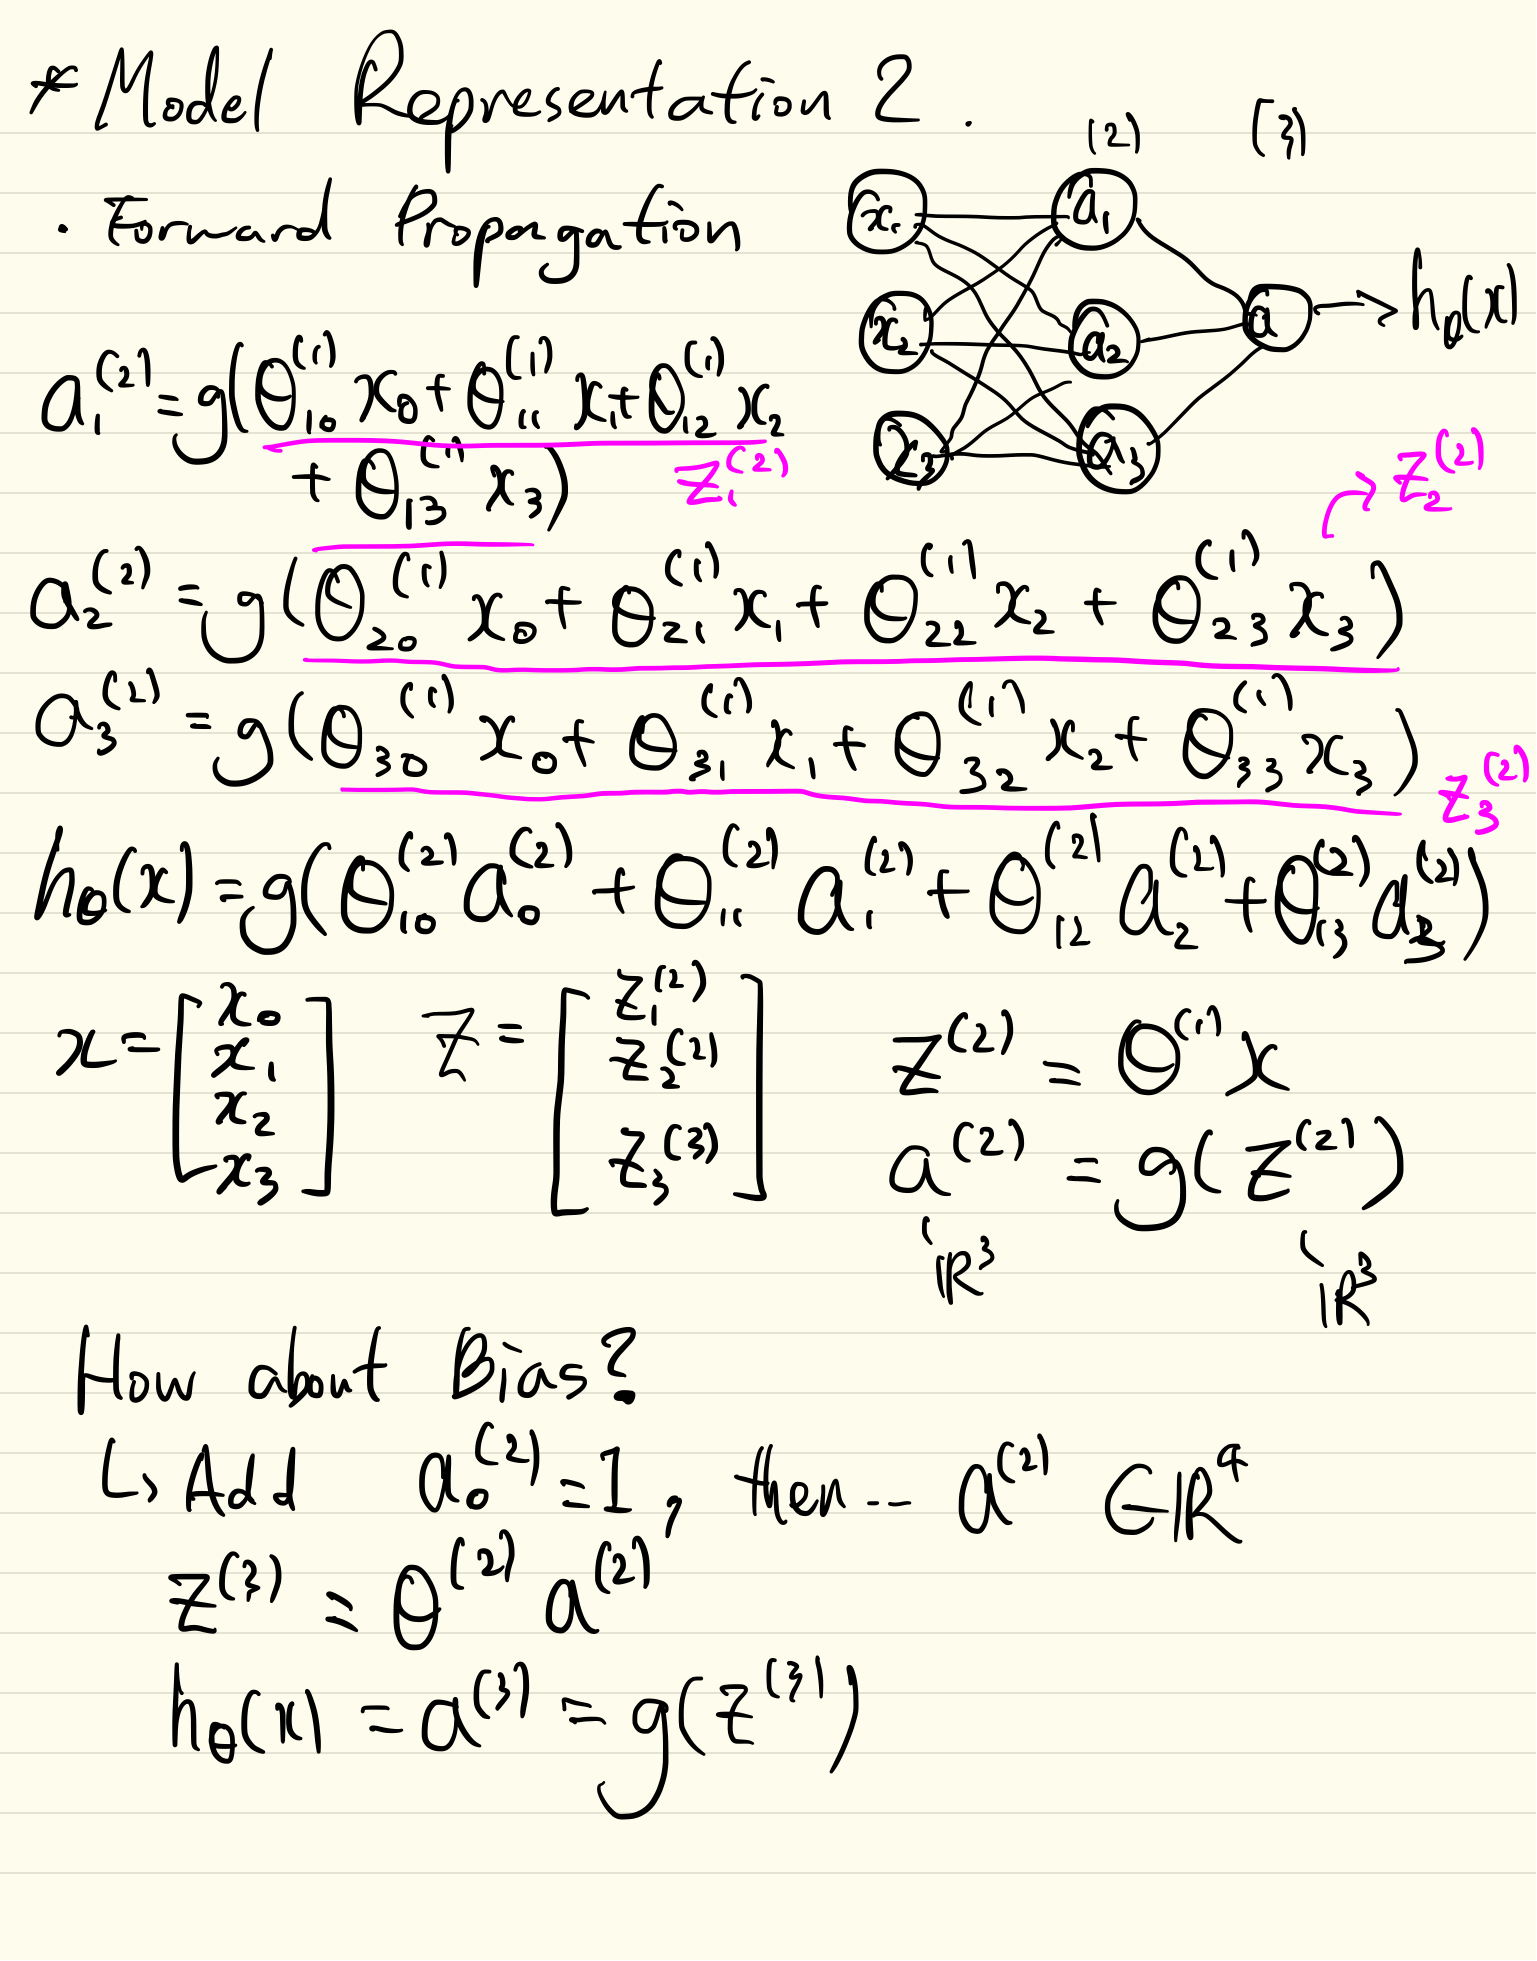 * Model Representation 2.
(2) (3)
· Forward Propagation
x₁ a₁
x₂ a₂ a → h_θ(x)
x₃ a₃
a₁⁽²⁾ = g(θ₁₀⁽¹⁾ x₀ + θ₁₁⁽¹⁾ x₁ + θ₁₂⁽¹⁾ x₂
+ θ₁₃⁽¹⁾ x₃) z₁⁽²⁾
→ z₂⁽²⁾
a₂⁽²⁾ = g(θ₂₀⁽¹⁾ x₀ + θ₂₁⁽¹⁾ x₁ + θ₂₂⁽¹⁾ x₂ + θ₂₃⁽¹⁾ x₃)
a₃⁽²⁾ = g(θ₃₀⁽¹⁾ x₀ + θ₃₁⁽¹⁾ x₁ + θ₃₂⁽¹⁾ x₂ + θ₃₃⁽¹⁾ x₃) z₃⁽²⁾
h_θ(x) = g(θ₁₀⁽²⁾ a₀⁽²⁾ + θ₁₁⁽²⁾ a₁⁽²⁾ + θ₁₂⁽²⁾ a₂⁽²⁾ + θ₁₃⁽²⁾ a₃⁽²⁾)
x = [x₀ x₁ x₂ x₃] z = [z₁⁽²⁾ z₂⁽²⁾ z₃⁽³⁾] z⁽²⁾ = θ⁽¹⁾ x
a⁽²⁾ = g(z⁽²⁾)
ℝ³ ℝ³
How about Bias?
↳ Add a₀⁽²⁾ = 1, then... a⁽²⁾ ∈ ℝ⁴
z⁽³⁾ = θ⁽²⁾ a⁽²⁾
h_θ(x) = a⁽³⁾ = g(z⁽³⁾)